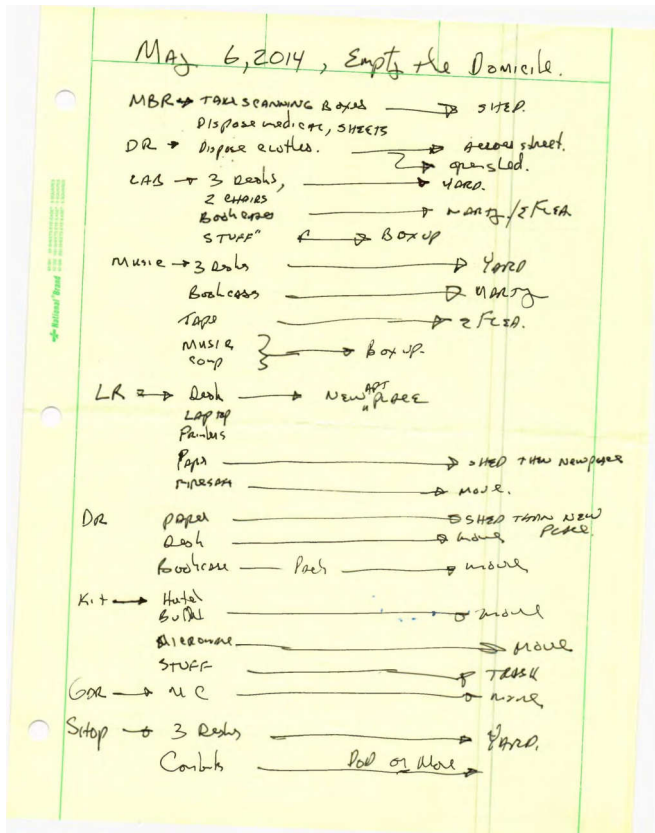 May 6, 2014, Empty the Domicile.
MBR → TAKE SCANNING BOXES → SHED.
Dispose medical, SHEETS
DR → Dispose clothes. → across street.
→ shed.
LAB → 3 Desks, → YARD.
2 CHAIRS
Bookcases → MARTY / 2 FLEA
STUFF" → BOX UP
Music → 3 Desks → YARD
Bookcases → MARTY
Tape → 2 FLEA.
MUSIC
COMP } → Box up.
LR → Desk → NEW APT PLACE
LAPTOP
Printers
Paper → SHED THEN NEW PLACE
FIRESAFE → MOVE.
DR paper → SHED THAN NEW PLACE.
Desk → move
Bookcase — Pack → move
Kit → 
→ move
Microwave → MOVE
STUFF → TRASH
GDR → MC → move
SHOP → 3 Desks → YARD.
Contents POD or Move →
National Brand